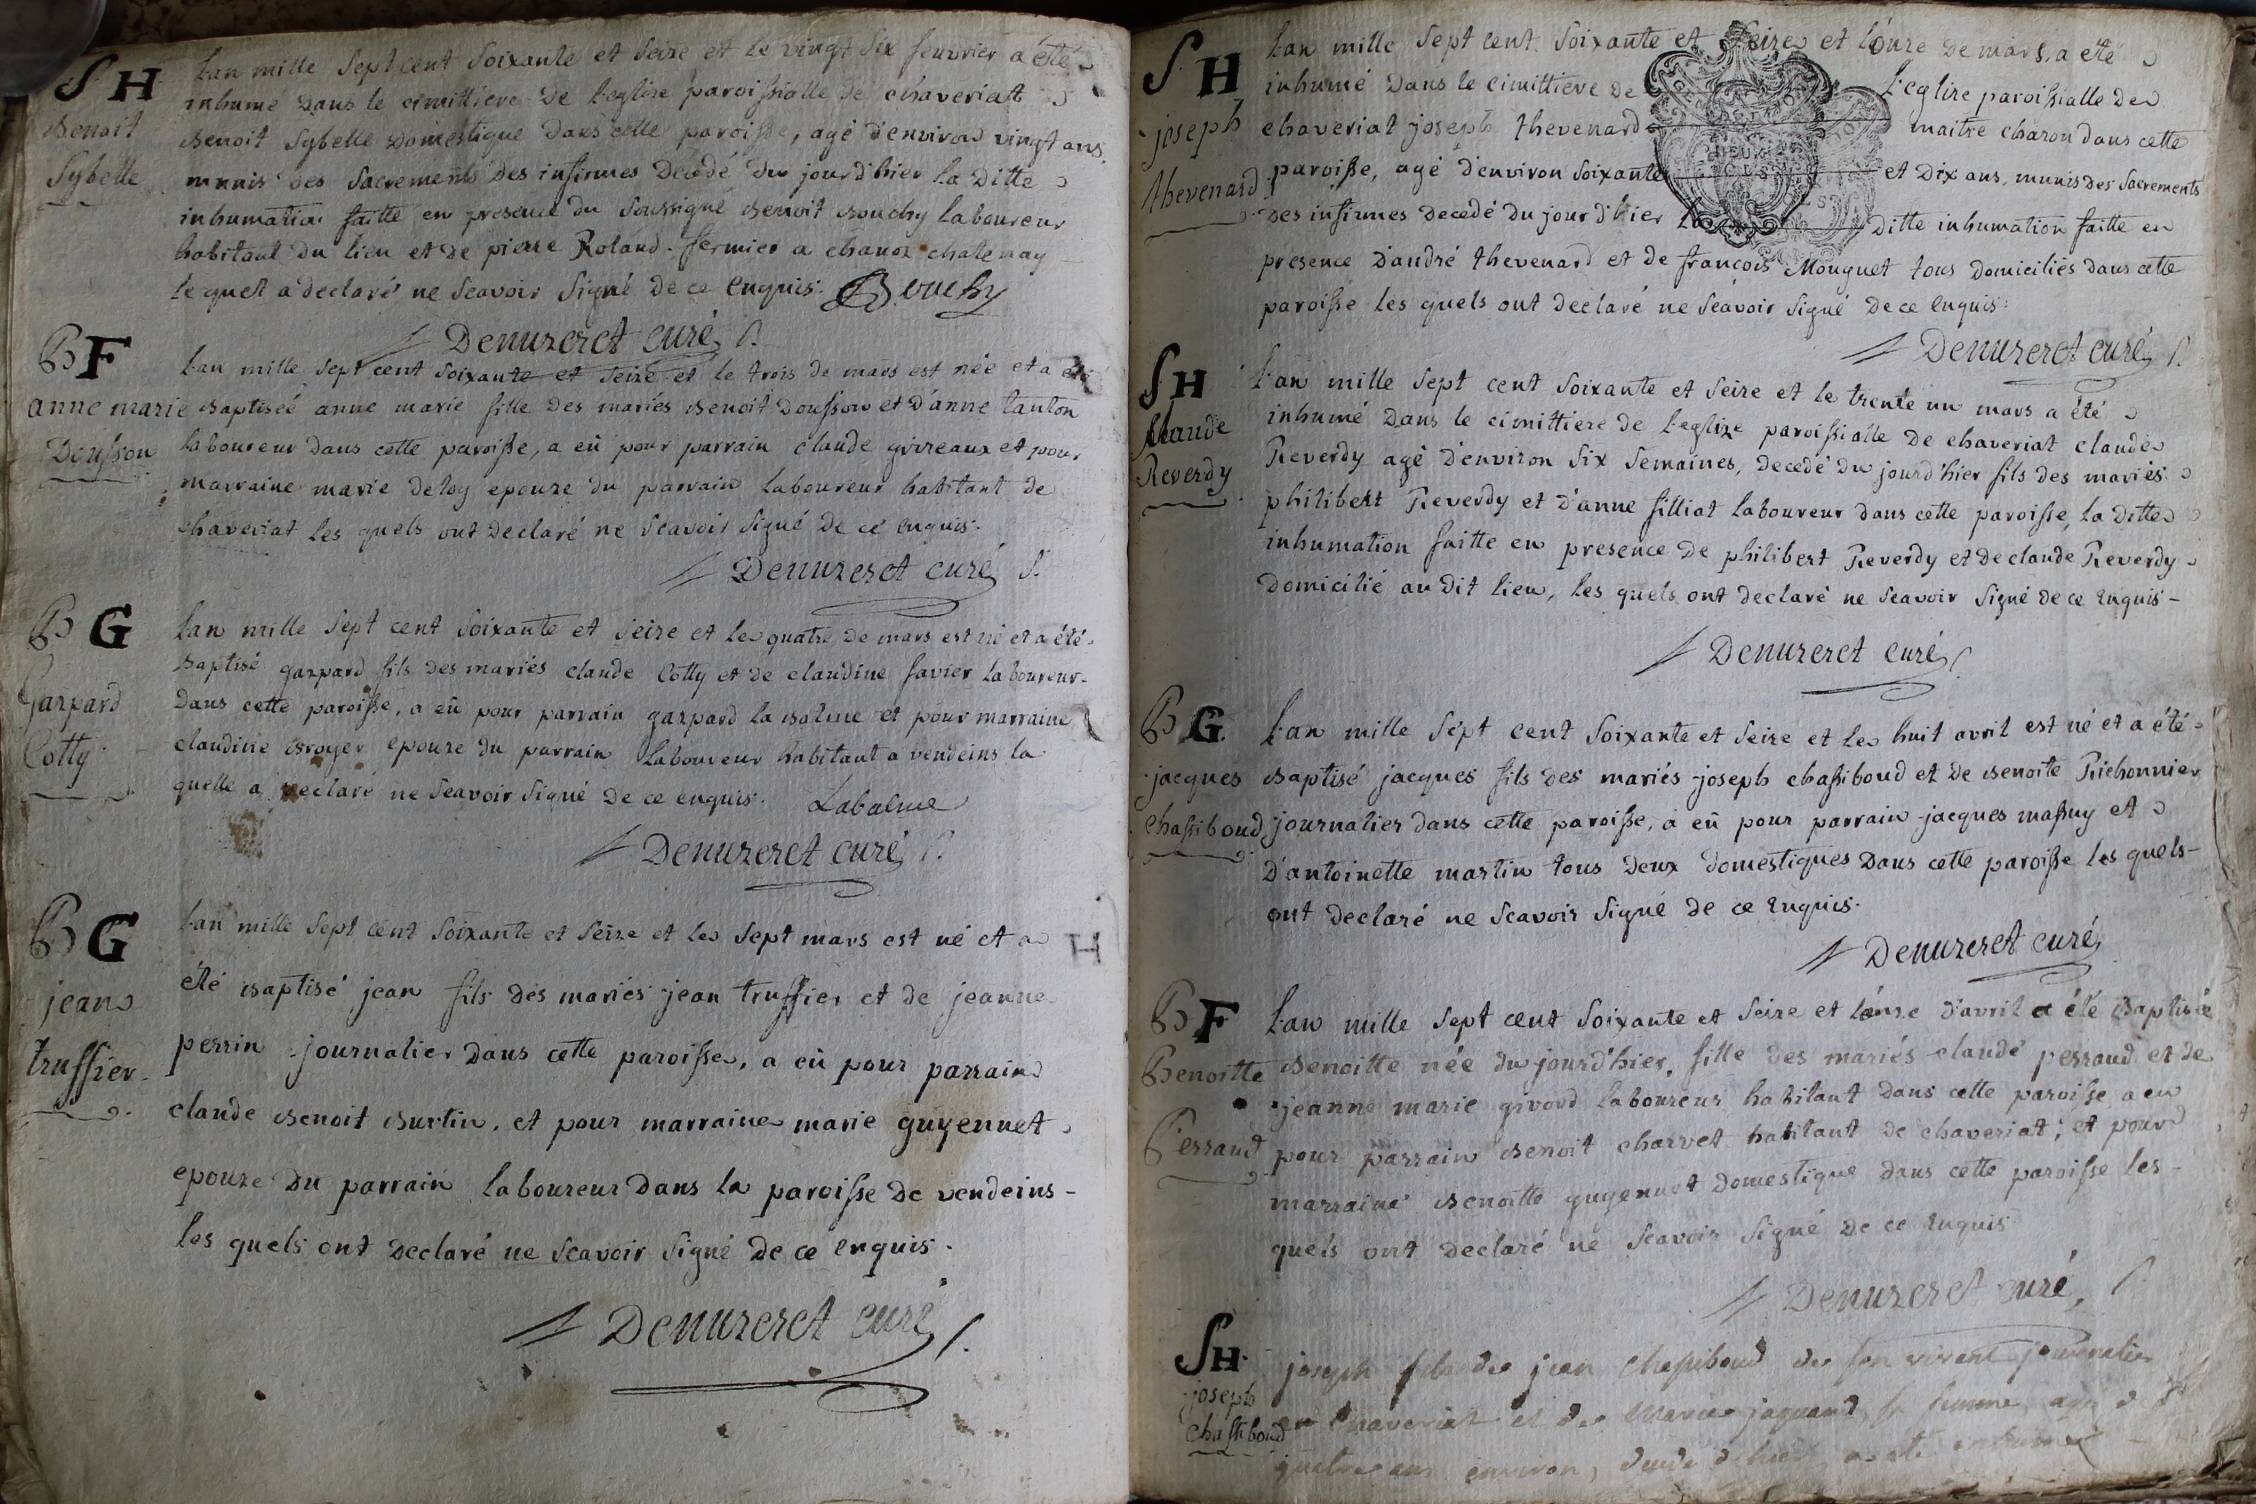 SH
Benoit
Sybelle
L'an mille sept cent soixante et seize et le vingt six feuvrier a été
inhumé dans le cimittiere de l'eglise paroissialle de chaveriat
Benoit Sybelle domestique dans cette paroisse, agé d'environ vingt ans
munis des sacrements des infirmes decedé du jourd'hier la ditte
inhumation faitte en presence du soussigné Benoit Bouchy laboureur
habitant du lieu et de pierre Roland fermier a chanoz chatenay
le quel a declaré ne scavoir signé de ce enquis. Bouchy
Denuzeret curé
BF
anne marie
Dousson
L'an mille sept cent soixante et seize et le trois de mars est née et a été
Baptiseé anne marie fille des mariés Benoit Dousson et d'anne tanton
laboureur dans cette paroisse, a eû pour parrain claude grireaux et pour
marraine marie deloy epouze du parrain laboureur habitant de
chaveriat les quels ont declaré ne scavoir signé de ce enquis.
Denuzeret curé
BG
Gaspard
Cotty
L'an mille sept cent soixante et seize et le quatre de mars est né et a été
Baptisé gaspard fils des mariés claude Cotty et de claudine favier laboureur
dans cette paroisse, a eû pour parrain gaspard la Balme et pour marraine
claudine Broyer epouze du parrain laboureur habitant a vendeins la
quelle a declaré ne scavoir signé de ce enquis. Labalme
Denuzeret curé
BG
jean
truffier
L'an mille sept cent soixante et seize et le sept mars est né et a
été Baptisé jean fils des mariés jean truffier et de jeanne
perrin journalier dans cette paroisse, a eû pour parrain
claude Benoit Burtin, et pour marraine marie guyennet
epouze du parrain laboureur dans la paroisse de vendeins
les quels ont declaré ne scavoir signé de ce enquis.
Denuzeret curé
SH
joseph
thevenard
L'an mille sept cent soixante et seize et l'onze de mars, a été
inhumé dans le cimittiere de l'eglise paroissialle de
chaveriat joseph thevenard maitre charon dans cette
paroisse, agé d'environ soixante et dix ans, munis des sacrements
des infirmes decedé du jour d'hier la ditte inhumation faitte en
presence d'andré thevenard et de françois Monguet tous domiciliés dans cette
paroisse les quels ont declaré ne scavoir signé de ce enquis.
Denuzeret curé
SH
Claude
Reverdy
L'an mille sept cent soixante et seize et le trente un mars a été
inhumé dans le cimittiere de l'eglize paroissialle de chaveriat claude
Reverdy agé d'environ six semaines, decedé du jourd'hier fils des mariés
philibert Reverdy et d'anne filliat laboureur dans cette paroisse, la ditte
inhumation faitte en presence de philibert Reverdy et de claude Reverdy
domicilié au dit lieu, les quels ont declaré ne scavoir signé de ce enquis
Denuzeret curé
BG
jacques
Chassiboud
L'an mille sept cent soixante et seize et le huit avril est né et a été
Baptisé jacques fils des mariés joseph chassiboud et de Benoite Richonnier
journalier dans cette paroisse, a eû pour parrain jacques massuy et
d'antoinette martin tous deux domestiques dans cette paroisse les quels
ont declaré ne scavoir signé de ce enquis.
Denuzeret curé
BF
Benoitte
Perraud
L'an mille sept cent soixante et seize et l'onze d'avril a été Baptiseé
Benoitte née du jourd'hier, fille des mariés claude perraud et de
jeanne marie givord laboureur habitant dans cette paroisse a eu
pour parrain Benoit charvet habitant de chaveriat; et pour
marraine Benoitte guyennet domestique dans cette paroisse les
quels ont declaré ne scavoir signé de ce enquis
Denuzeret curé
SH
joseph
Chassiboud
joseph fils de jean Chassiboud de son vivant journalier
en Chaveriat et de Marie jaquand sa femme, agé de
quatre ans environ, decedé d'hier a eté inhumé